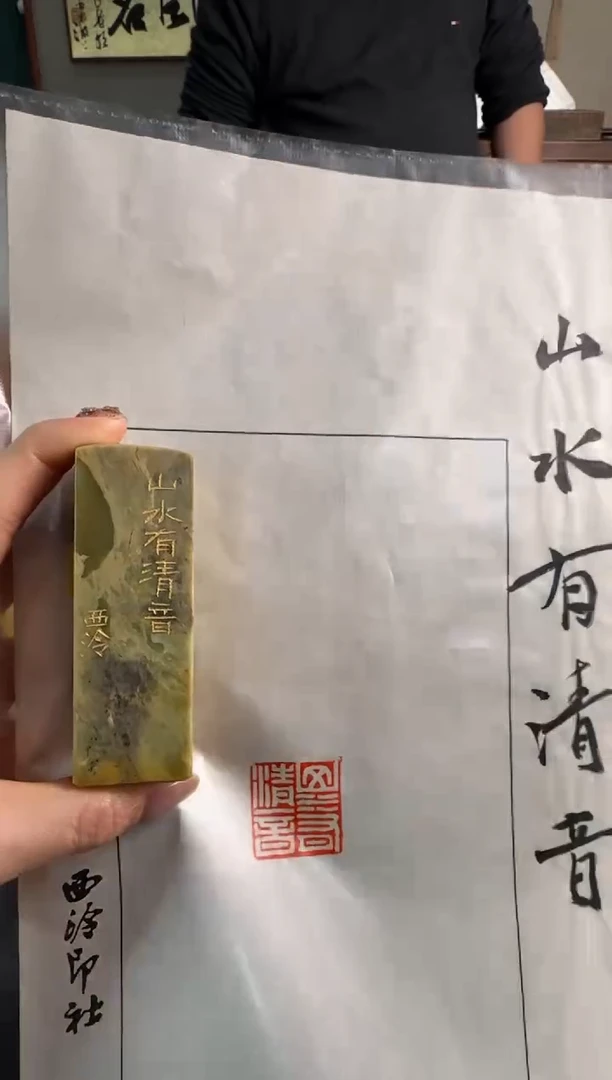 山水有清音
山水有清音
西泠
山水有清音
西泠印社